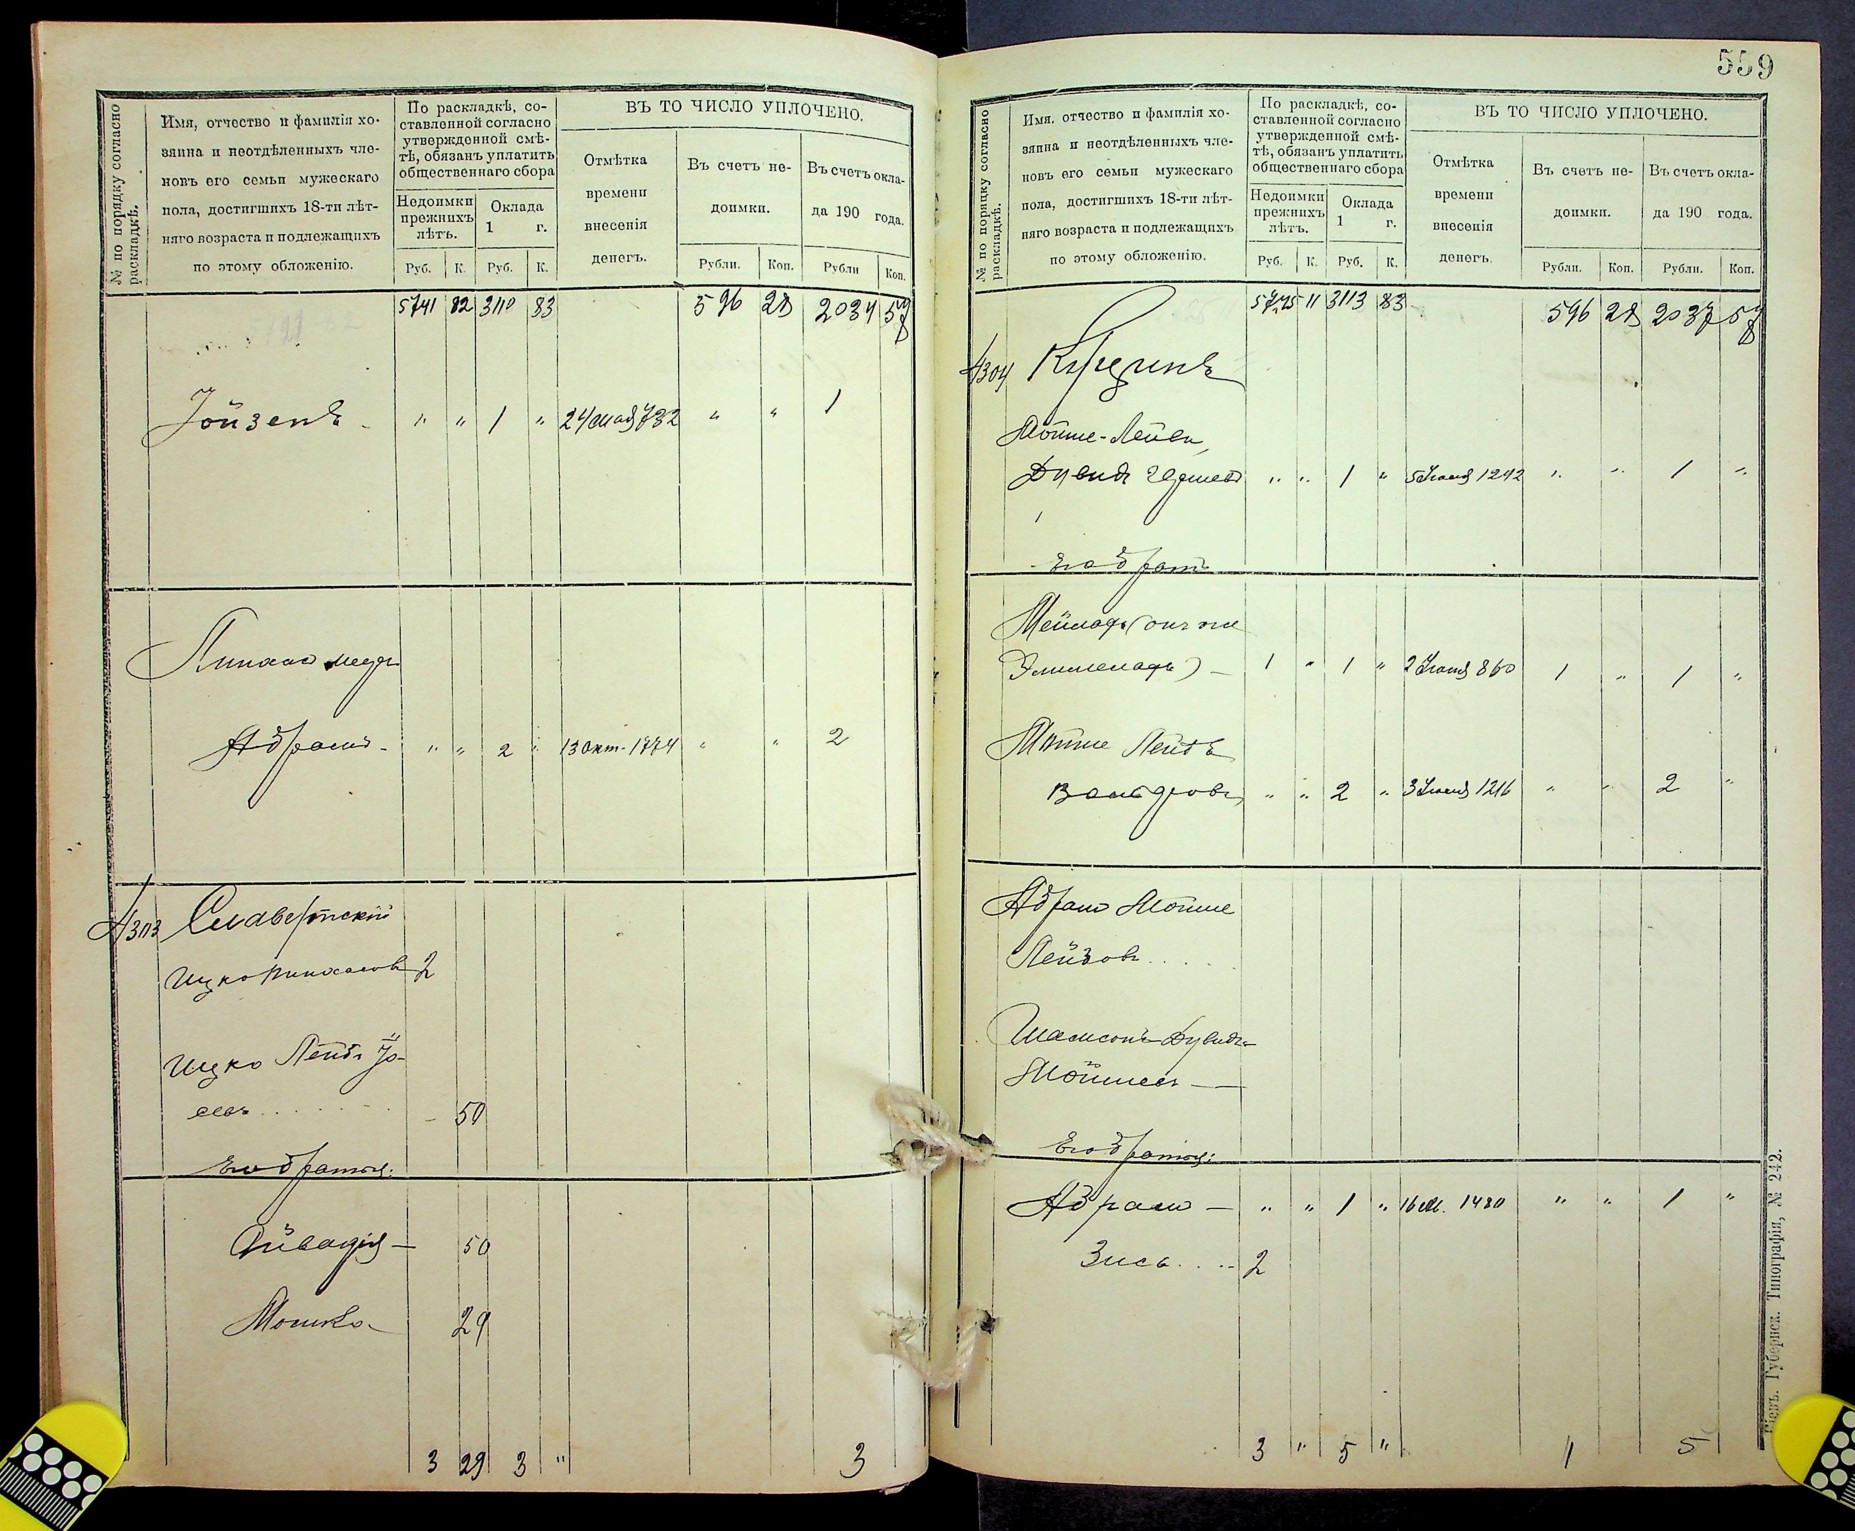 № по порядку согласно раскладкѣ.
Имя, отчество и фамилія хо-
зяина и неотдѣленныхъ чле-
новъ его семьи мужескаго
пола, достигшихъ 18-ти лѣт-
няго возраста и подлежащихъ
по этому обложенію.
По раскладкѣ, со-
ставленной согласно
утвержденной смѣ-
тѣ, обязанъ уплатить
общественнаго сбора
Недоимки
прежнихъ
лѣтъ.
Оклада
1 г.
Руб. К. Руб. К.
ВЪ ТО ЧИСЛО УПЛОЧЕНО.
Отмѣтка
времени
внесенія
денегъ.
Въ счетъ не-
доимки.
Въ счетъ окла-
да 190 года.
Рубли. Коп. Рубли Коп.
5741 82 3110 83 596 28 2034 57
Іойзепъ - " " 1 " 24 мая 732 " " 1
Пинхас
Абрамъ - " " 2 " 13 Окт. 1774 " " 2
4303 Славертскій
Ицко Пинхасовъ 2
Ицко Лейбъ Іо-
сев. . . . . . - 50
Его братья:
Овадія — 50
Мошко - 29
3 29 3 " 3
559
№ по порядку согласно раскладкѣ.
Имя, отчество и фамилія хо-
зяина и неотдѣленныхъ чле-
новъ его семьи мужескаго
пола, достигшихъ 18-ти лѣт-
няго возраста и подлежащихъ
по этому обложенію.
По раскладкѣ, со-
ставленной согласно
утвержденной смѣ-
тѣ, обязанъ уплатить
общественнаго сбора
Недоимки
прежнихъ
лѣтъ.
Оклада
1 г.
Руб. К. Руб. К.
ВЪ ТО ЧИСЛО УПЛОЧЕНО.
Отмѣтка
времени
внесенія
денегъ.
Въ счетъ не-
доимки.
Въ счетъ окла-
да 190 года.
Рубли. Коп. Рубли. Коп.
5745 11 3113 83 596 28 2037 57
4304
Мойше-Лейви
Дувидъ Гершев " " 1 " 5 1242 " " 1 "
Его братъ
Мейлафъ (онъ же
Элимелафъ) — 1 " 1 " 2 860 1 " 1 "
Мойше Лейбъ
Вольфовъ " " 2 " 3 1216 " " 2 "
Абрамъ Мойше
Лейзов. . . . .
Шамсонъ-Дувидъ
Мойшев — —
Его братья:
Абрамъ — " " 1 " 16 1480 " " 1 "
Зись. . . . 2
3 " 5 " 1 5
Кіевъ. Губернск. Типографія, № 242.